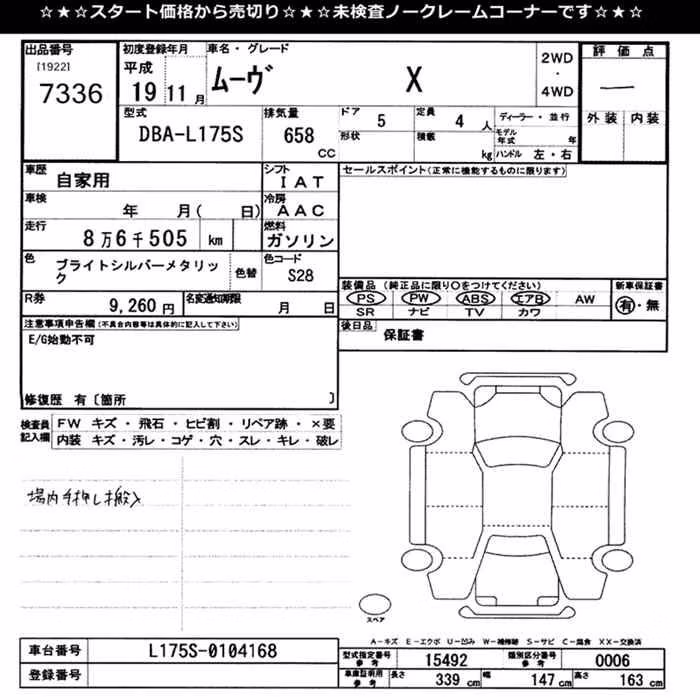 ☆★☆スタート価格から売切り☆★☆未検査ノークレームコーナーです☆★☆
出品番号
[1922]
7336
初度登録年月
平成
19 11 月
車名・グレード
ムーヴ X
2WD
・
4WD
評価点
―
外装 内装
型式
DBA-L175S
排気量
658
CC
ドア 5
定員 4 人
形状
積載 kg
ディーラー・並行
モデル年式 年
ハンドル 左・右
車歴
自家用
シフト
IAT
車検
年 月( 日)
冷房
AAC
走行
8万6千505 km
燃料
ガソリン
色
ブライトシルバーメタリック
色替
色コード
S28
R券
9,260 円
名変通知期限
月 日
セールスポイント(正常に機能するものに限ります)
装備品(純正品に限り○をつけてください)
PS PW ABS エアB AW
SR ナビ TV カワ
新車保証書
有・無
後日品
保証書
注意事項申告欄(不具合内容等は具体的に記入して下さい)
E/G始動不可
修復歴 有〔箇所 〕
検査員記入欄
FW キズ・飛石・ヒビ割・リペア跡・×要
内装 キズ・汚レ・コゲ・穴・スレ・キレ・破レ
場内手押し搬入
スペア
A-キズ E-エクボ U-凹み W-補修跡 S-サビ C-腐食 XX-交換済
車台番号
L175S-0104168
登録番号
型式指定番号
参考
15492
類別区分番号
参考
0006
車庫証明用
参考
長さ 339 cm
幅 147 cm
高さ 163 cm